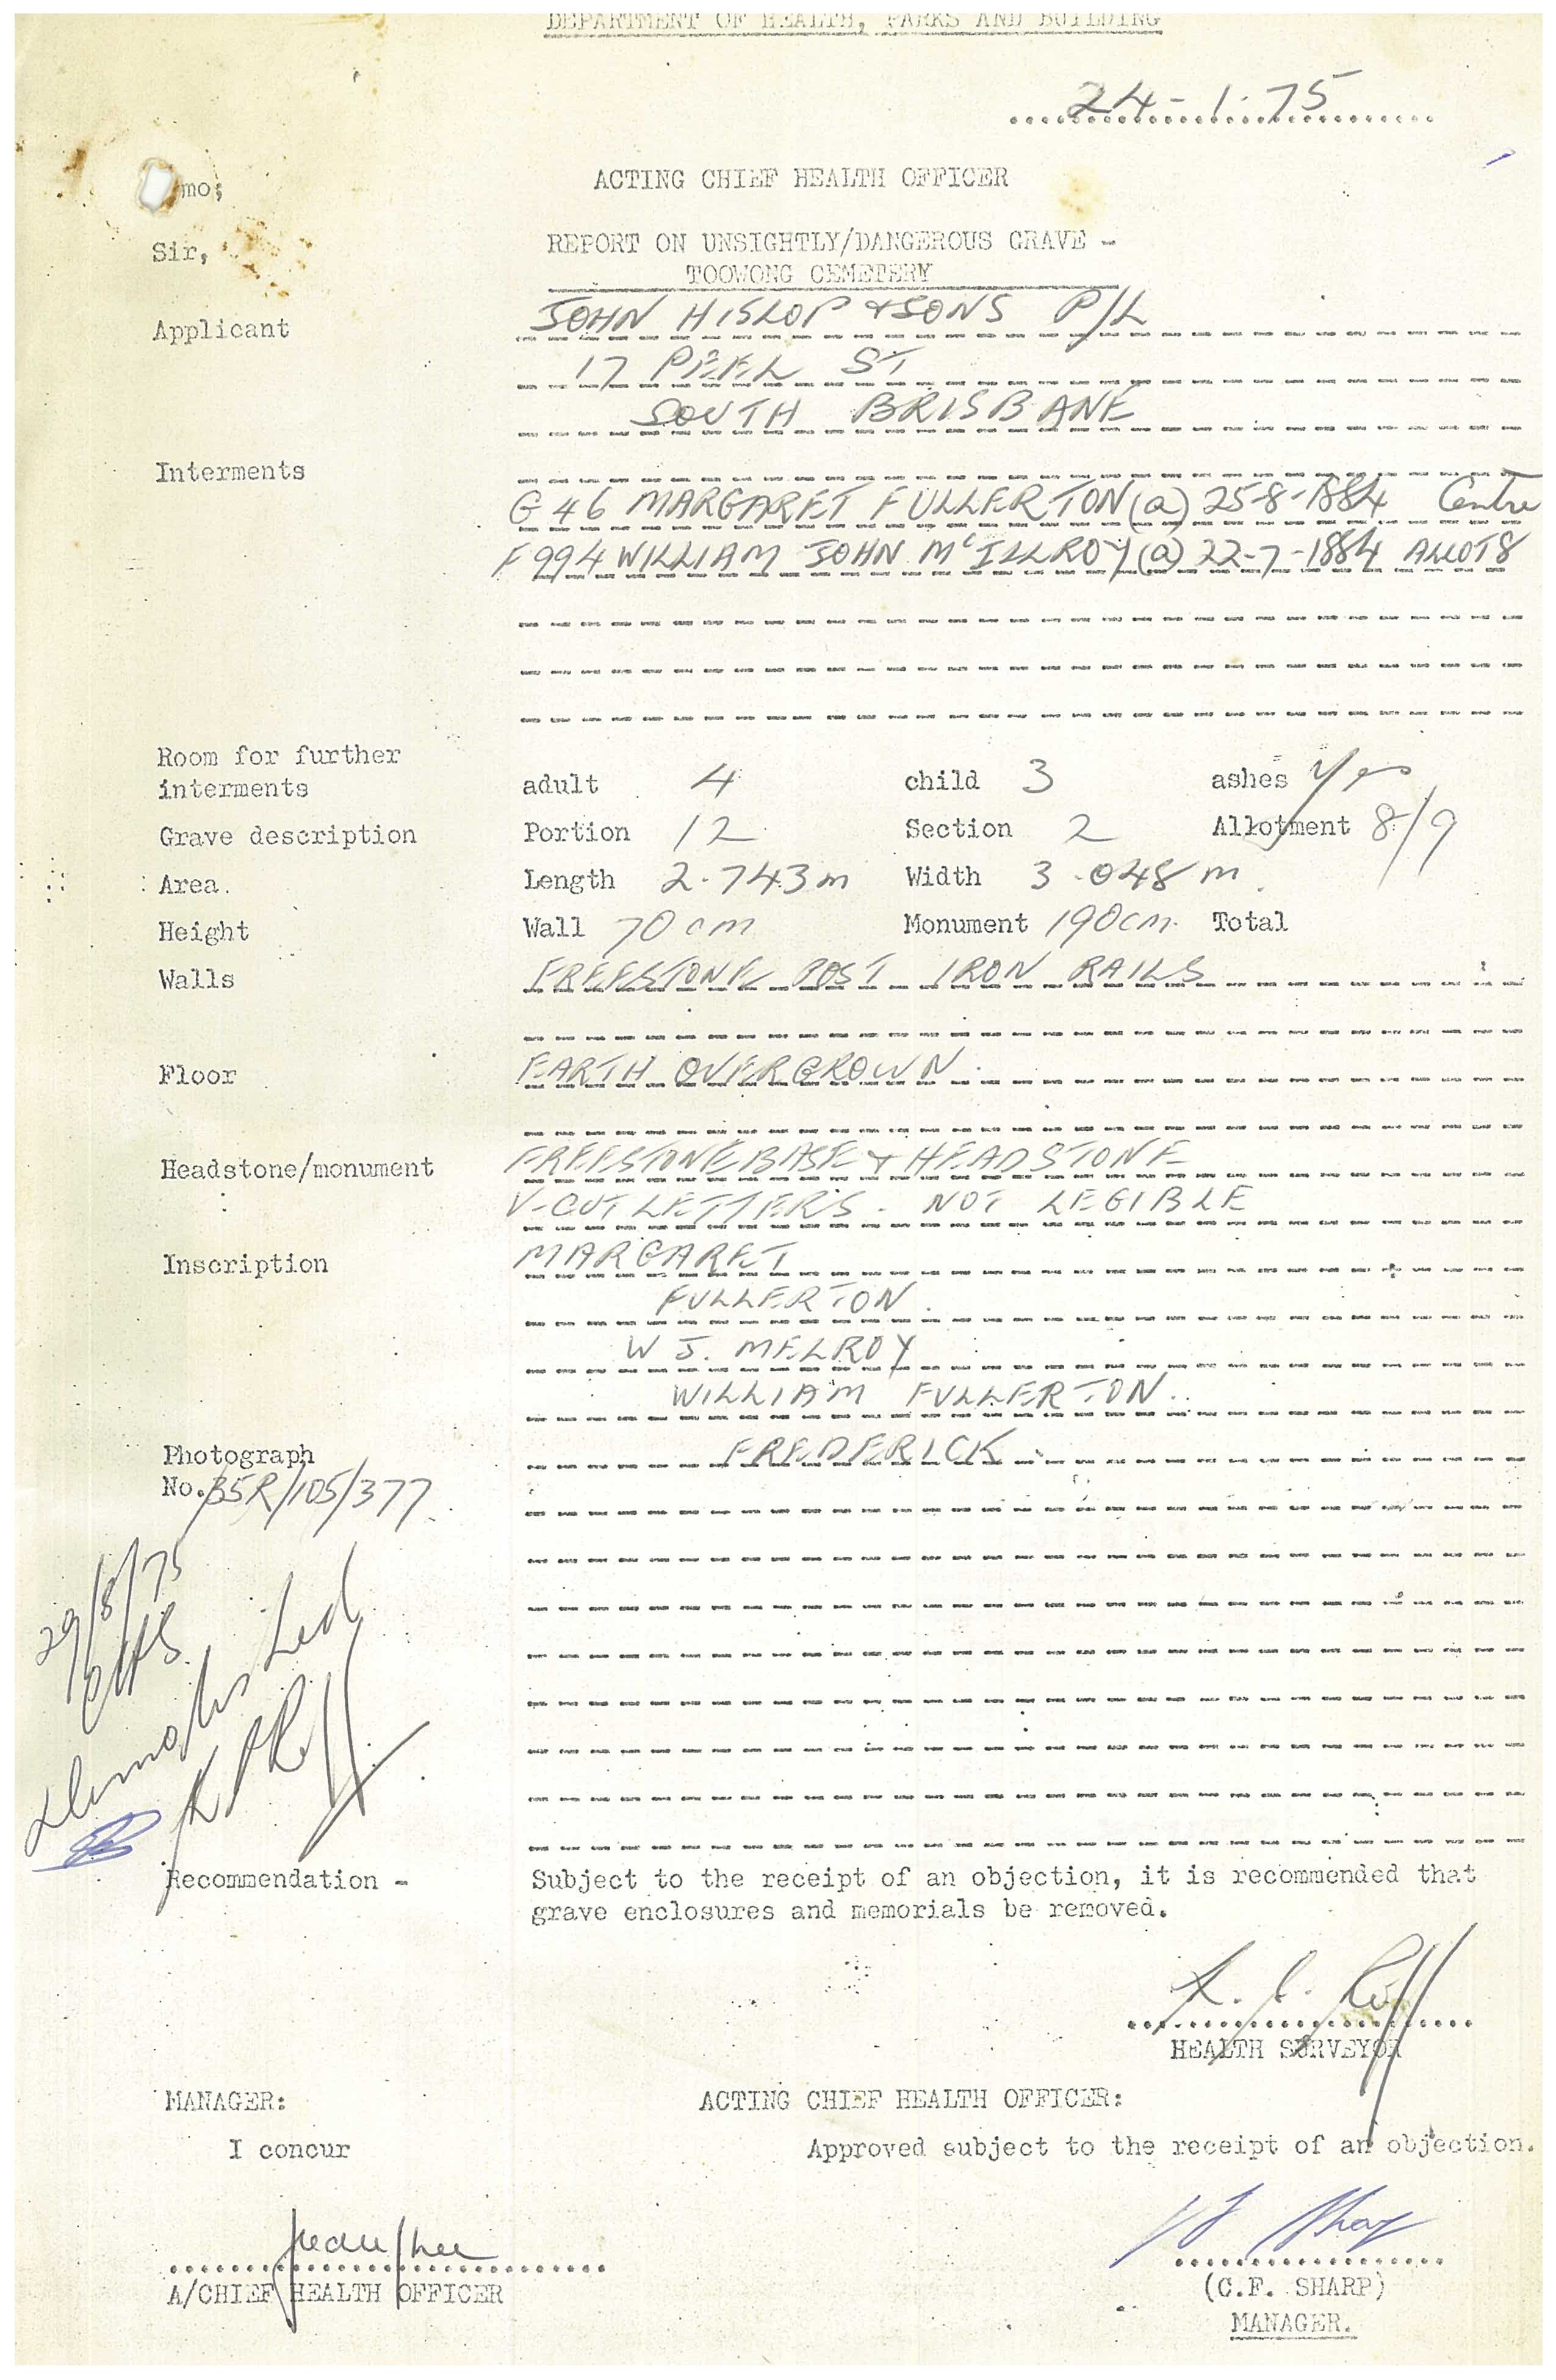 DEPARTMENT OF HEALTH, PARKS AND BUILDING
24-1-75
mo;
ACTING CHIEF HEALTH OFFICER
Sir,
REPORT ON UNSIGHTLY/DANGEROUS GRAVE -
TOOWONG CEMETERY
Applicant JOHN HISLOP & SONS P/L
17 PEEL ST
SOUTH BRISBANE
Interments
G 46 MARGARET FULLERTON (a) 25-8-1884 Centre
F 994 WILLIAM JOHN McILLROY (a) 22-7-1884 ALLOT 8
Room for further
interments adult 4 child 3 ashes Yes
Grave description Portion 12 Section 2 Allotment 8/9
Area. Length 2.743m Width 3.048 m.
Height Wall 70 cm Monument 190cm. Total
Walls FREESTONE POST IRON RAILS
Floor EARTH OVERGROWN.
Headstone/monument FREESTONE BASE & HEADSTONE
V-CUT LETTERS - NOT LEGIBLE
Inscription MARGARET
FULLERTON.
W J. MELROY
WILLIAM FULLERTON.
Photograph FREDERICK.
No. B5R/105/377.
29/8/75
Recommendation - Subject to the receipt of an objection, it is recommended that
grave enclosures and memorials be removed.
HEALTH SURVEYOR
MANAGER: ACTING CHIEF HEALTH OFFICER:
I concur Approved subject to the receipt of an objection.
A/CHIEF HEALTH OFFICER (C.F. SHARP)
MANAGER.